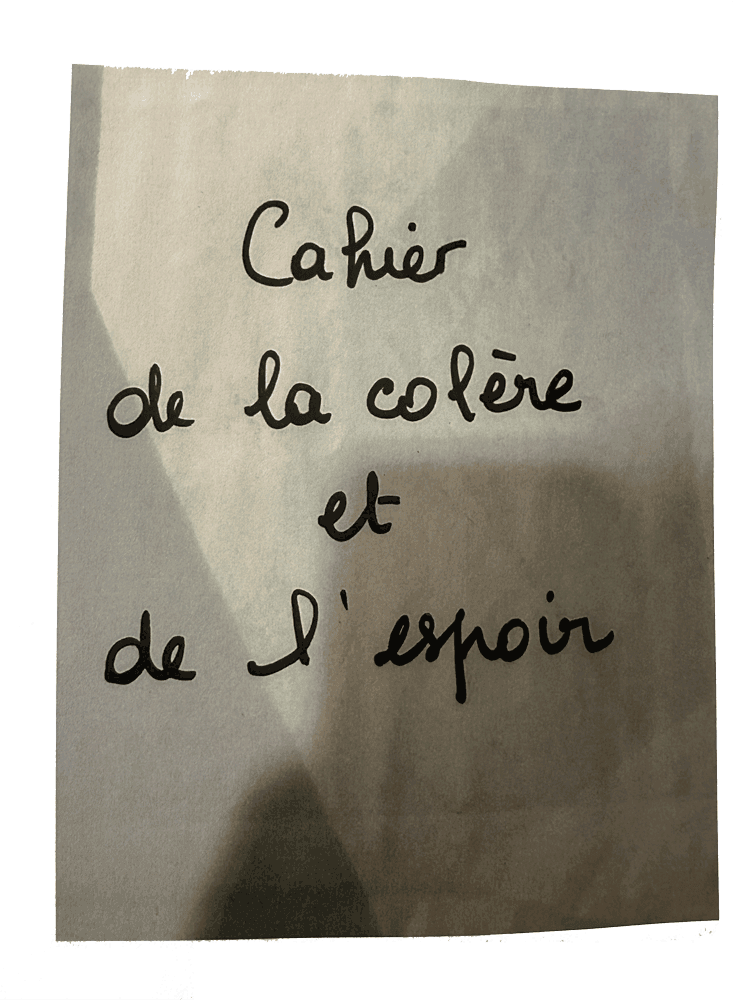 Cahier
de la colère
et
de l'espoir